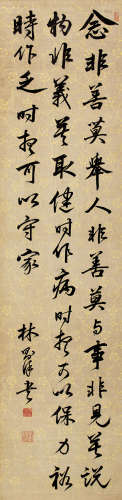 念非善莫舉人非善莫与事非見莫說
物非義莫取健时作病时想可以保力裕
時作乏时想可以守家
林則徐书